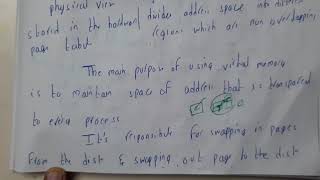 physical view divides address space into distinct
stored in the hardware regions which are non overlapping
page table
The main purpose of using virtual memory
is to maintain space of address that is transparent
to every process
It's responsible for swapping in pages
from the disk & swapping out page to the disk